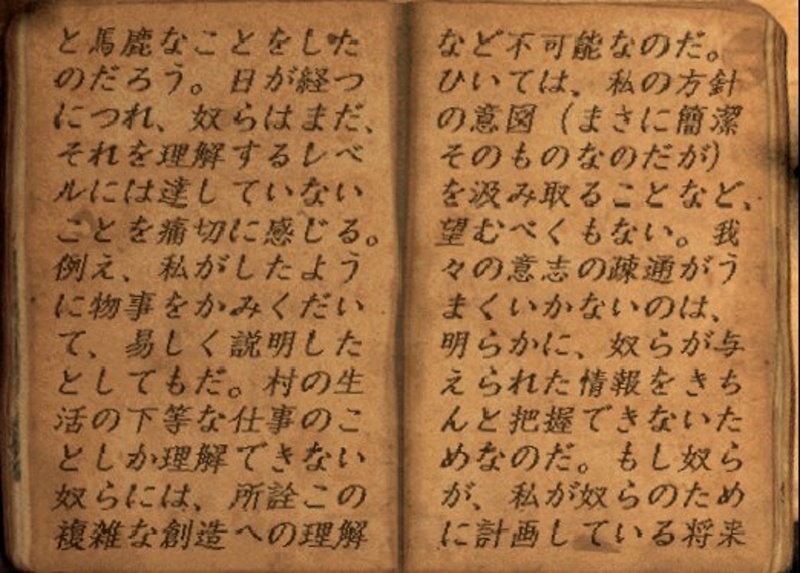 と馬鹿なことをした
のだろう。日が経つ
につれ、奴らはまだ、
それを理解するレベ
ルには達していない
ことを痛切に感じる。
例え、私がしたよう
に物事をかみくだい
て、易しく説明した
としてもだ。村の生
活の下等な仕事のこ
としか理解できない
奴らには、所詮この
複雑な創造への理解
など不可能なのだ。
ひいては、私の方針
の意図（まさに簡潔
そのものなのだが）
を汲み取ることなど、
望むべくもない。我
々の意志の疎通がう
まくいかないのは、
明らかに、奴らが与
えられた情報をきち
んと把握できないた
めなのだ。もし奴ら
が、私が奴らのため
に計画している将来